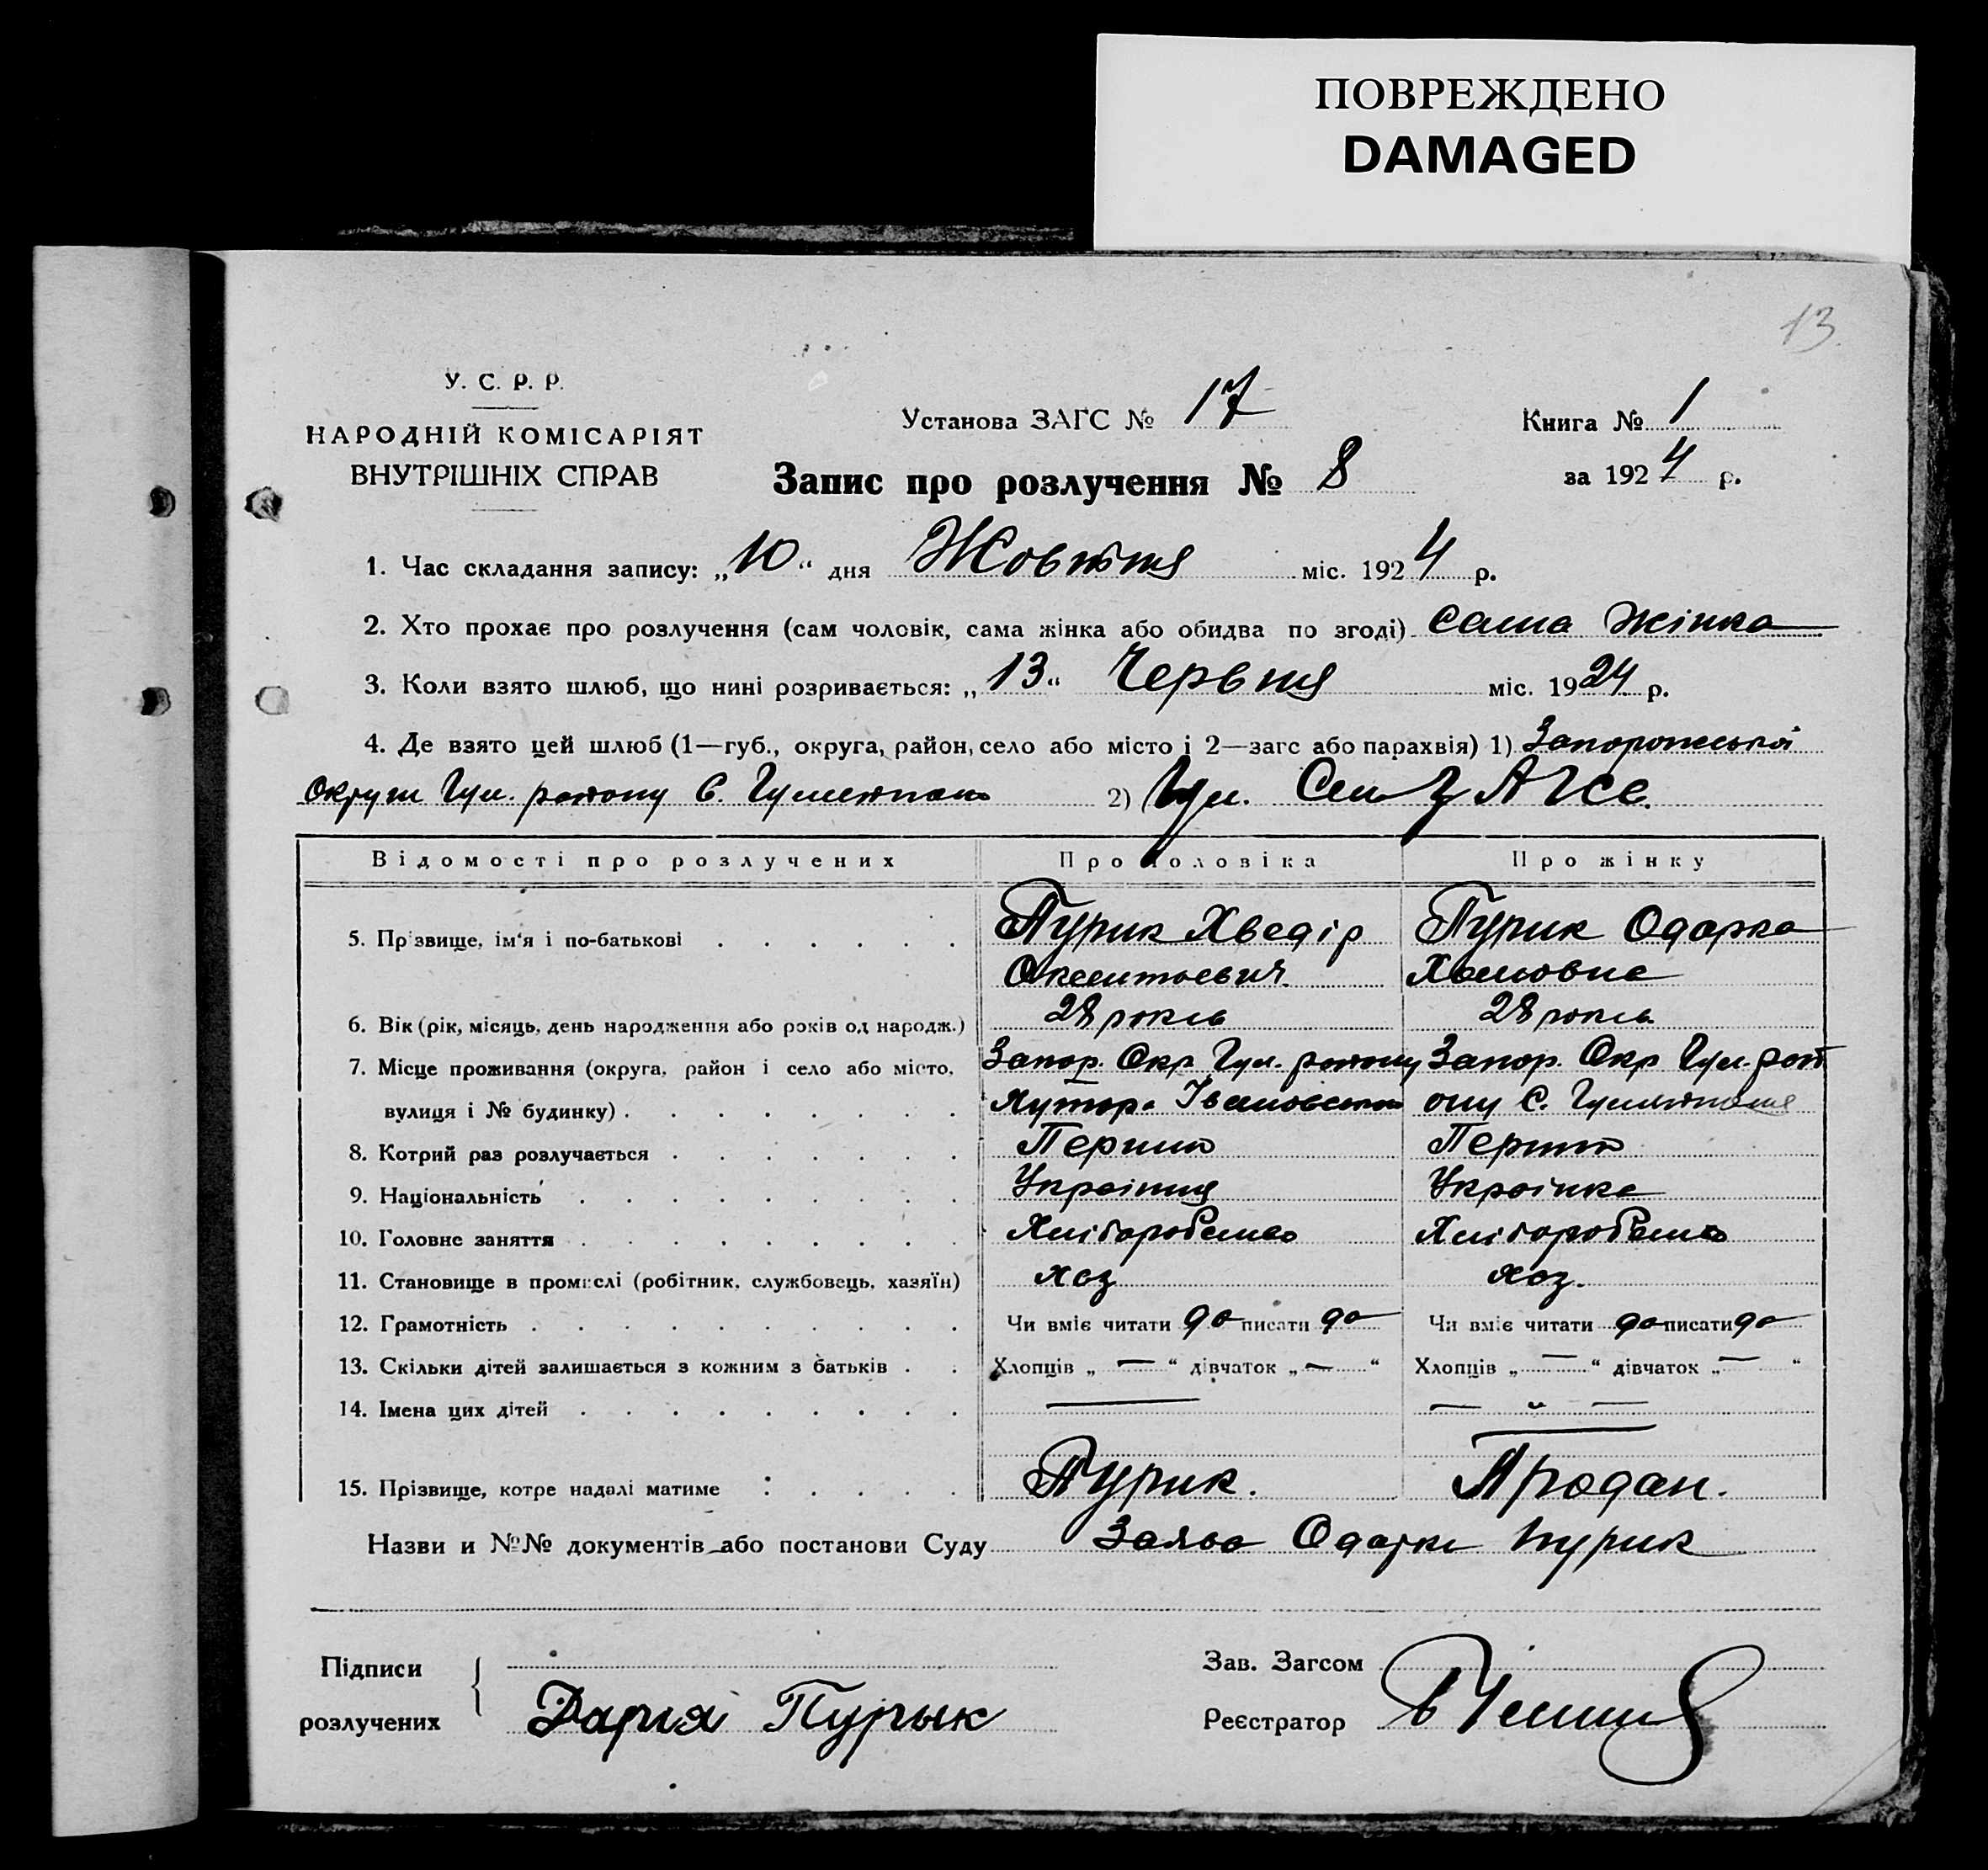 ПОВРЕЖДЕНО
DAMAGED
13
У. С. Р. Р.
НАРОДНІЙ КОМІСАРІЯТ
ВНУТРІШНІХ СПРАВ
Установа ЗАГС № 17
Книга № 1
Запис про розлучення № 8
за 1924 р.
1. Час складання запису: „10“ дня Жовтня міс. 1924 р.
2. Хто прохає про розлучення (сам чоловік, сама жінка або обидва по згоді) сама жінка
3. Коли взято шлюб, що нині розривається: „13“ Червня міс. 1924 р.
4. Де взято цей шлюб (1—губ., округа, район, село або місто і 2—загс або парахвія) 1) Запорожської
Округи Гул. району С. 2) Гул.
Відомості про розлучених Про чоловіка Про жінку
5. Прізвище, ім'я і по-батькові Пурик Хведір Пурик Одарка
6. Вік (рік, місяць, день народження або років од народж.) 28 років 28 років
7. Місце проживання (округа, район і село або місто, Запор. Окр Гул. району Запор. Окр Гул. рай
вулиця і № будинку) Хутор. ону С.
8. Котрий раз розлучається Перший Перший
9. Національність Українця Українка
10. Головне заняття Хліборобство Хліборобство
11. Становище в промислі (робітник, службовець, хазяїн) хаз хаз.
12. Грамотність Чи вміє читати да писати да Чи вміє читати да писати да
13. Скільки дітей залишається з кожним з батьків Хлопців „—“ дівчаток „—“ Хлопців „—“ дівчаток „—“
14. Імена цих дітей — — „ —
15. Прізвище, котре надалі матиме Пурик. Продан.
Назви и №№ документів або постанови Суду Заява Одарки Пурик
Підписи
розлучених Дария Пурык
Зав. Загсом
Реєстратор